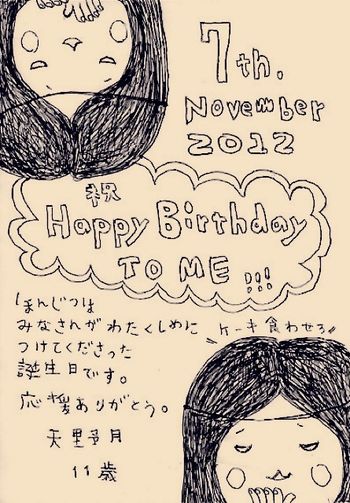 7th.
November
2012
祝
Happy Birthday
TO ME!!!
ほんじつは
みなさんがわたくしめに
つけてくださった
誕生日です。
応援ありがとう。
天里多月
11歳
ケーキ食わせろ